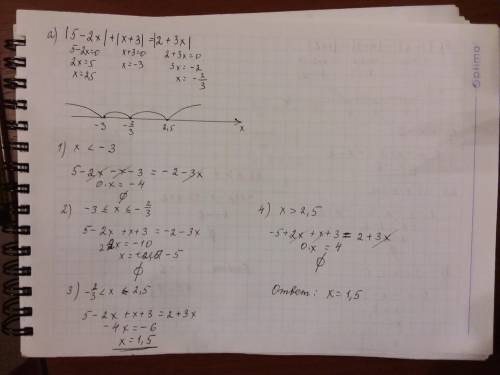 а) |5-2x|+|x+3|=|2+3x|
5-2x=0 x+3=0 2+3x=0
2x=5 x=-3 3x=-2
x=2,5 x=-2/3
-3 -2/3 2,5 x
1) x < -3
5-2x-x-3=-2-3x
0·x=-4
∅
2) -3≤x≤-2/3
5-2x+x+3=-2-3x
2x=-10
- 5
∅
3) -2/3<x≤2,5
5-2x+x+3=2+3x
-4x=-6
x=1,5
4) x>2,5
-5+2x+x+3=2+3x
0·x=4
∅
Ответ: x=1,5
optima